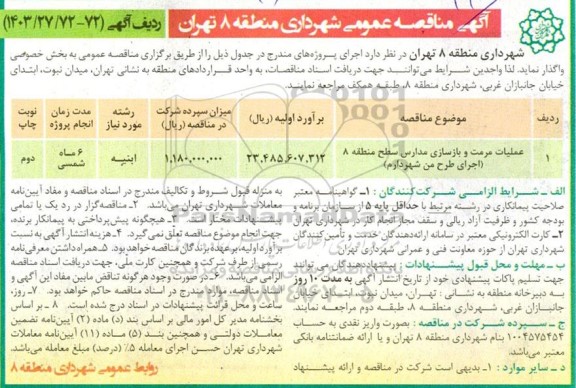 آگهی مناقصه عمومی شهرداری منطقه ۸ تهران
ردیف آگهی (۷۲-۱۴۰۳/۲۷/۷۲)
شهرداری منطقه ۸ تهران در نظر دارد اجرای پروژه‌های مندرج در جدول ذیل را از طریق برگزاری مناقصه عمومی به بخش خصوصی
واگذار نماید. لذا واجدین شرایط می‌توانند جهت دریافت اسناد مناقصات، به واحد قراردادهای منطقه به نشانی تهران، میدان نبوت، ابتدای
خیابان جانبازان غربی، شهرداری منطقه ۸، طبقه همکف مراجعه نمایند.
ردیف
موضوع مناقصه
برآورد اولیه (ریال)
میزان سپرده شرکت در مناقصه (ریال)
رشته مورد نیاز
مدت زمان انجام پروژه
نوبت چاپ
۱
عملیات مرمت و بازسازی مدارس سطح منطقه ۸ (اجرای طرح من شهردارم)
۲۳،۴۸۵،۶۰۷،۳۱۲
۱،۱۸۰،۰۰۰،۰۰۰
ابنیه
۶ ماه شمسی
دوم
الف - شرایط الزامی شرکت‌کنندگان: ۱- گواهینامه معتبر
صلاحیت پیمانکاری در رشته مرتبط با حداقل پایه ۵ از سازمان برنامه و
بودجه کشور و ظرفیت آزاد ریالی و سقف مجاز انجام کار از شهرداری تهران
۲- کارت الکترونیکی معتبر در سامانه ارائه‌دهندگان خدمت و تأمین کنندگان
شهرداری تهران از حوزه معاونت فنی و عمرانی شهرداری
ب - مهلت و محل قبول پیشنهادات: پیشنهاددهندگان می توانند
جهت تسلیم پاکات پیشنهادی خود از تاریخ انتشار آگهی به مدت ۱۰ روز
به دبیرخانه منطقه به نشانی: تهران، میدان نبوت، ابتدای خیابان
جانبازان غربی، شهرداری منطقه ۸، طبقه دوم مراجعه نمایند.
ج - سپرده شرکت در مناقصه: بصورت واریز نقدی به حساب
۱۰۰۴۵۷۵۴۵۴ بنام شهرداری منطقه ۸ تهران و یا ارائه ضمانتنامه بانکی
معتبر می‌باشد.
د - سایر موارد: ۱- بدیهی است شرکت در مناقصه و ارائه پیشنهاد
به منزله قبول شروط و تکالیف مندرج در اسناد مناقصه و مفاد آیین‌نامه
معاملات شهرداری تهران می‌باشد. ۲- مناقصه‌گزار در رد یک یا تمامی
پیشنهادات مختار است. ۳- هیچگونه پیش‌پرداختی به پیمانکار برنده،
جهت انجام موضوع مناقصه تعلق نمی‌گیرد. ۴- هزینه انتشار آگهی به نسبت
برآورد اولیه بر عهده برندگان مناقصه خواهد بود. ۵- همراه داشتن معرفی‌نامه
رسمی از طرف شرکت و همچنین کارت ملی، جهت دریافت اسناد مناقصه
الزامی است. ۶- در صورت وجود هرگونه تناقض مابین مفاد این آگهی و
اسناد مناقصه، موارد مندرج در اسناد مناقصه حاکم خواهد بود. ۷- روز،
ساعت و محل قرائت پیشنهادات در اسناد درج شده است. ۸- بر اساس
بخشنامه مدیر کل امور مالی بر اساس بند (د) ماده (۲) آیین‌نامه تضمین
معاملات دولتی و همچنین بند (۵) ماده (۱۱) آیین‌نامه معاملات
شهرداری تهران حسن اجرای معامله ۵٪ (درصد) مبلغ معامله می‌باشد.
روابط عمومی شهرداری منطقه ۸